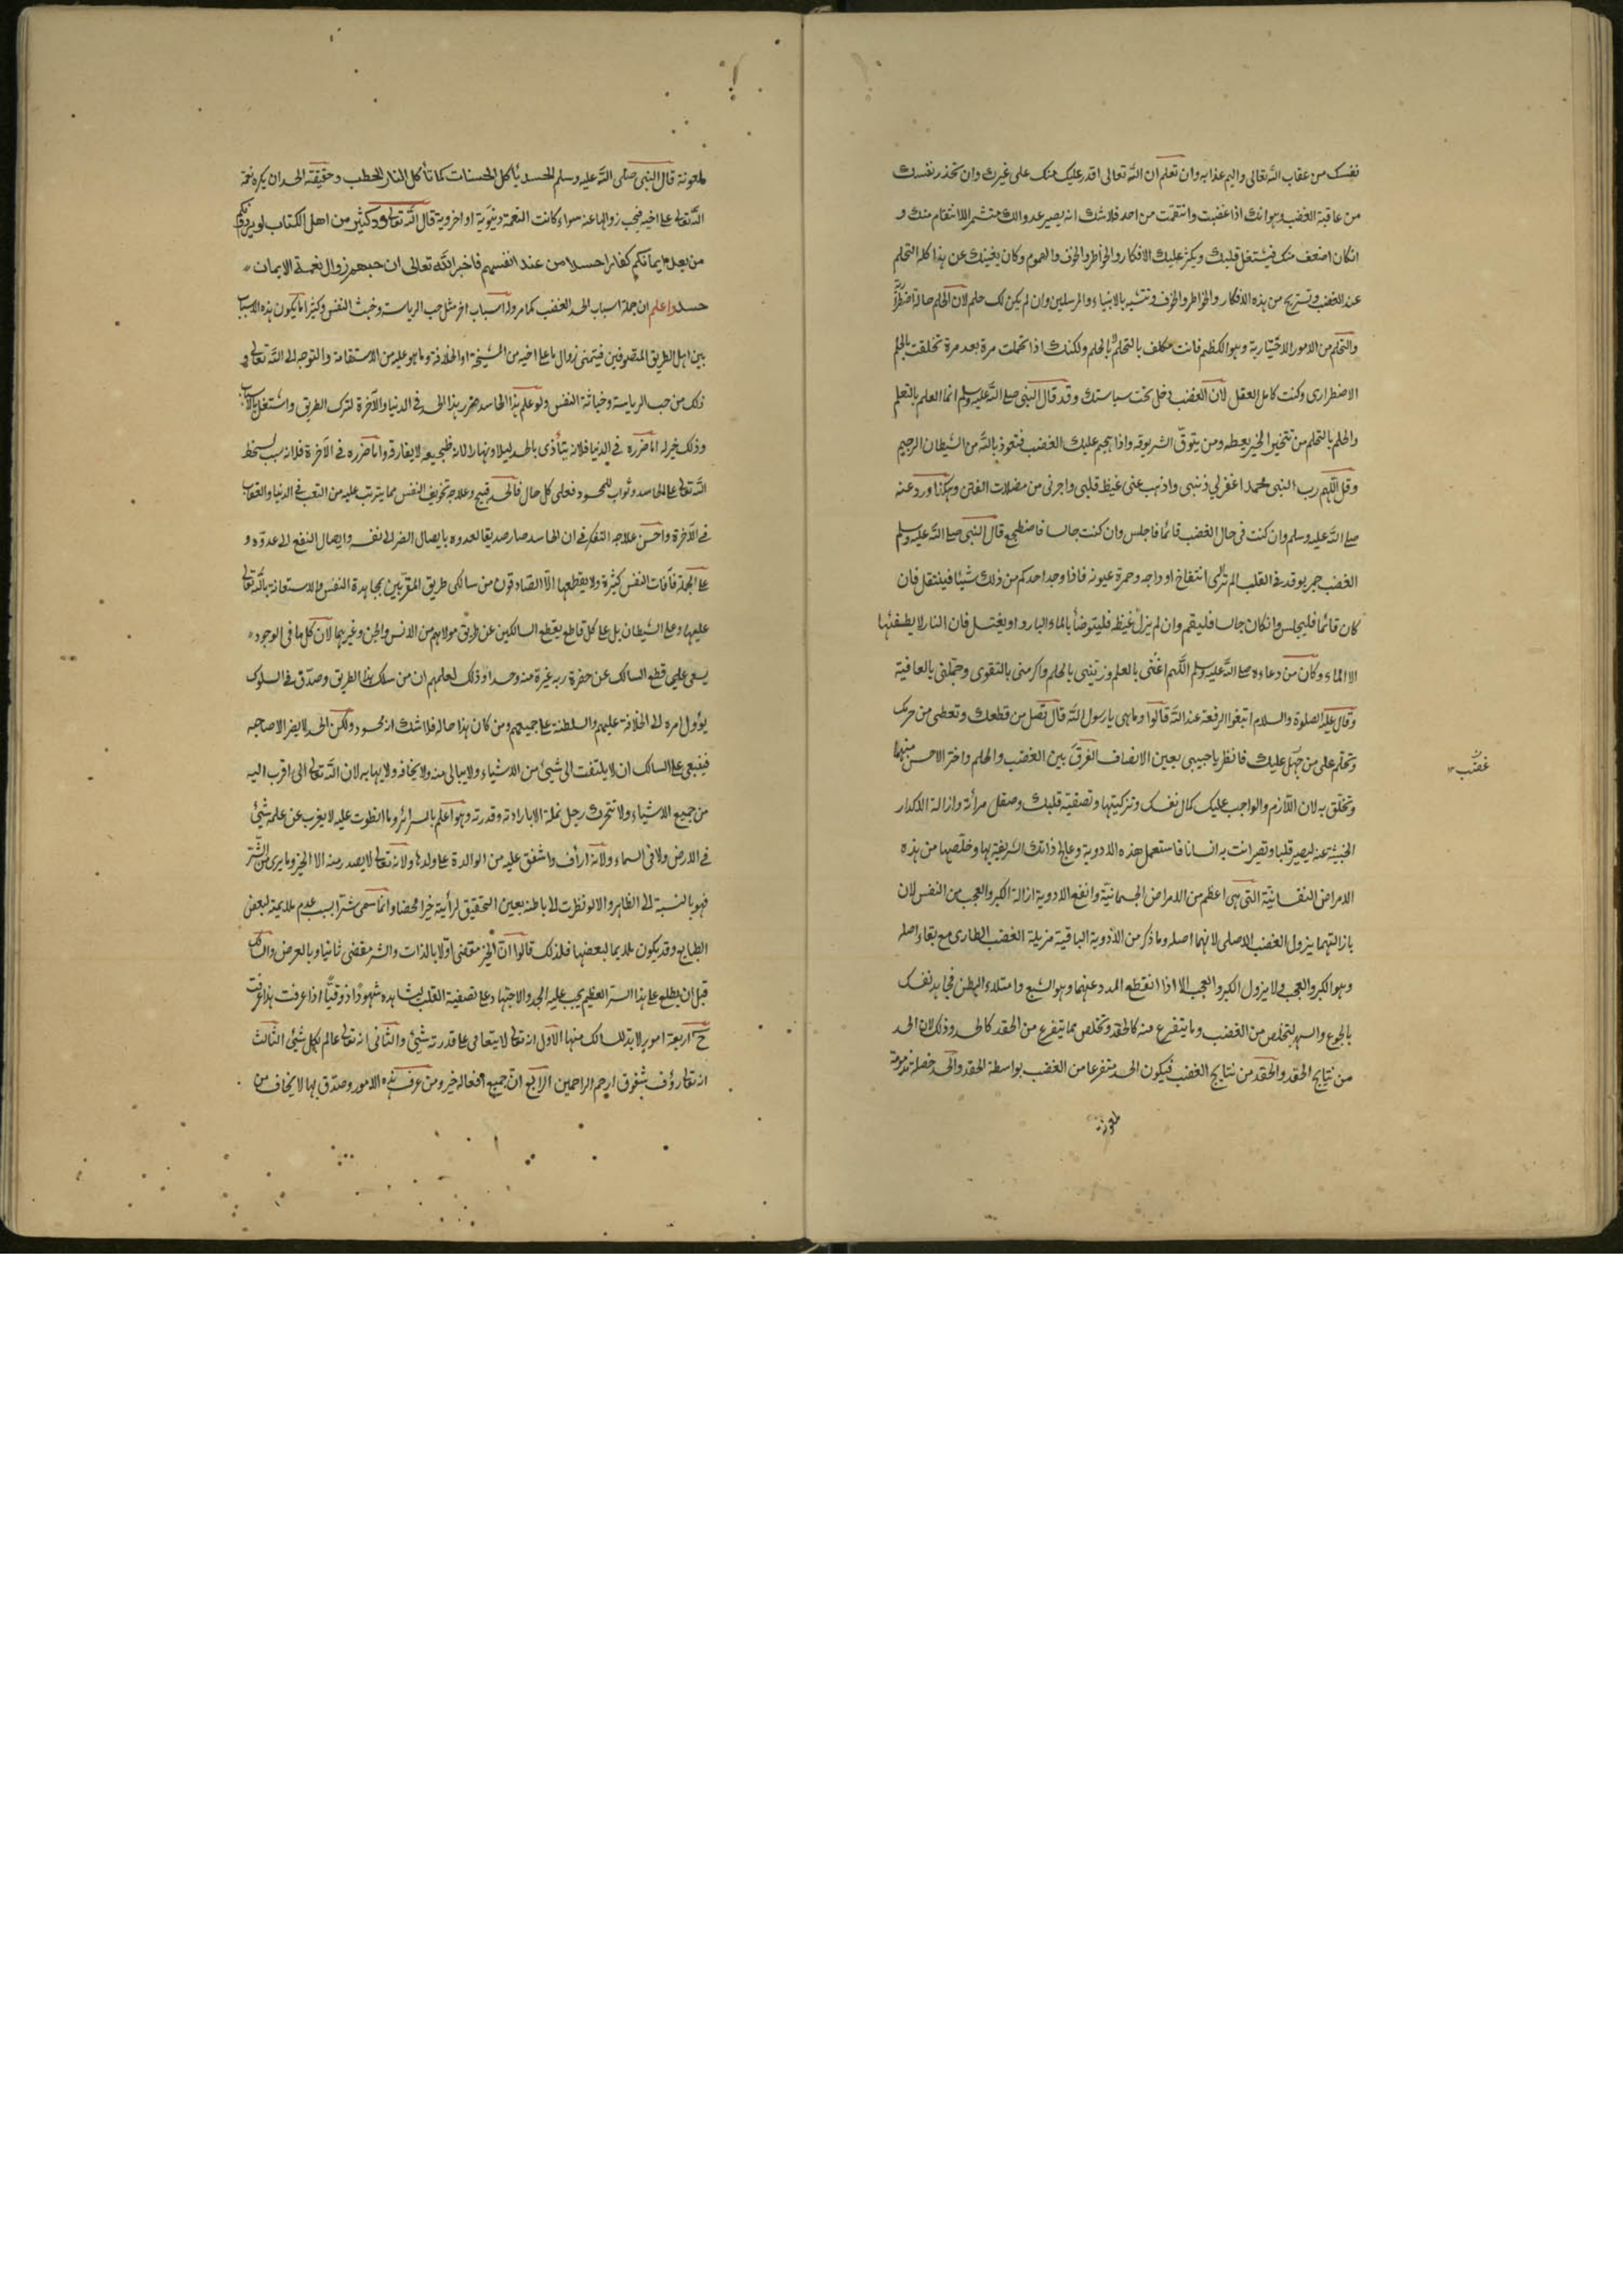 نفسك من عقاب الله تعالى واليم عذابه وان تعلم ان الله تعالى اقدر عليك منك على غيرك وان تحذر نفسك
من عاقبة الغضب وهو انك اذا غضبت وانتقمت من احد فلا شك انه يصير عدوا لك متشمرا للانتقام منك و
انكان اضعف منك فيشتغل قلبك ويكثر عليك الافكار والخواطر والخوف والهموم وكان يغنيك عن هذا كله التحلم
عند الغضب وتستريح من هذه الافكار والخواطر والخوف وتتشبه بالانبياء والمرسلين وان لم يكن لك حلم لان الحلم حالة اضطرارية
والتحلم من الامور الاختيارية وهو الكظم فانت مكلف بالتحلم لا بالحلم ولكنك اذا تحملت مرة بعد مرة تخلقت بالحلم
الاضطرارى وكنت كامل العقل لان الغضب دخل تحت سياستك وقد قال النبى صلى الله عليه وسلم انما العلم بالتعلم
والحلم بالتحلم من تتخير الخير يعطه ومن يتوق الشر يوقه واذا هجم عليك الغضب فتعوذ بالله من الشيطان الرجيم
وقل اللهم رب النبى محمد اغفر لي ذنبى واذهب عنى غيظ قلبى واجرنى من مضلات الفتن وهكذا ورد عنه
صلى الله عليه وسلم وان كنت فى حال الغضب قائما فاجلس وان كنت جالسا فاضطجع قال النبى صلى الله عليه وسلم
الغضب جمر يوقد فى القلب الم تر الى انتفاخ اوداجه وحمرة عيونه فاذا وجد احدكم من ذلك شيئا فينتقل فان
كان قائما فليجلس وانكان جالسا فليقم وان لم يزل غيظه فليتوضأ بالماء البارد او يغتسل فان النار لا يطفئها
الا الماء وكان من دعاءه صلى الله عليه وسلم اللهم اغننى بالعلم وزينى بالحلم واكرمنى بالتقوى وجملنى بالعافية
وقال عليه الصلوة والسلام ابتغوا الرفعة عند الله قالوا وما هى يا رسول الله قال تصل من قطعك وتعطى من حرمك
وتحلم على من جهل عليك فانظر يا حبيبى بعين الانصاف الفرق بين الغضب والحلم واختر الاحسن منهما
وتخلق به لان اللازم والواجب عليك كمال نفسك وتزكيتها وتصفية قلبك وصقل مرأته وازالة الاكدار
الخبيثة عنه ليصير قلبا وتصير انت به انسانا فاستعمل هذه الادوية وعالج ذاتك الشريفة بها وخلصها من هذه
الامراض النفسانية التى هى اعظم من الامراض الجسمانية وانفع الادوية ازالة الكبر والعجب من النفس لان
بازالتهما يزول الغضب الاصلى لانهما اصله وما ذكر من الادوية الباقية مزيلة الغضب الطارى مع بقاء اصله
وهو الكبر والعجب ولا يزول الكبر والعجب الا اذا انقطع المدد عنهما وهو الشبع وامتلاء البطن فجاهد نفسك
بالجوع والسهر لتخلص من الغضب وما يتفرع منه كالحقد وتخلص مما يتفرع من الحقد كالحسد وذلك لان الحسد
من نتايج الحقد والحقد من نتايج الغضب فيكون الحسد متفرعا من الغضب بواسطة الحقد والحسد خصلة مذمومة
ملعونة
غضب
ملعونة قال النبى صلى الله عليه وسلم الحسد يأكل الحسنات كما تأكل النار الحطب وحقيقة الحسد ان يكره نعمة
الله تعالى على اخيه فيحب زوالها عنه سواء كانت النعمة دنيوية او اخروية قال الله تعالى ود كثير من اهل الكتاب لو يردونكم
من بعد ايمانكم كفارا حسدا من عند انفسهم فاخبر الله تعالى ان حبهم زوال نعمة الايمان
حسد واعلم ان جملة اسباب الحسد الغضب كما مر وله اسباب اخر مثل حب الرياسة وخبث النفس وكثيرا ما يكون هذه الاسباب
بين اهل الطريق المتصوفين فيتمنى زوال ما على اخيه من المشيخة او الخلافة وما هو عليه من الاستقامة والتوجه الى الله تعالى و
ذلك من حب الرياسة وخباثة النفس ولو علم هذا الحاسد ضرر هذا الحسد فى الدنيا والآخرة لترك الطريق واشتغل بالاسباب
وذلك خير له اما ضرره فى الدنيا فلانه يتأذى بالحسد ليلا ونهارا لانه ضجيعه لا يفارقه واما ضرره فى الآخرة فلانه سبب لسخط
الله تعالى على الحاسد وثواب للمحسود فعلى كل حال فالحسد قبيح وعلاجه تخويف النفس مما يترتب عليه من التعب فى الدنيا والعقاب
فى الآخرة واحسن علاجه التفكر فى ان الحاسد صار صديقا لعدوه بايصال الضر الى نفسه وايصال النفع الى عدوه و
على الجملة فآفات النفس كثيرة ولا يقطعها الا الصادقون من سالكى طريق المقربين بمجاهدة النفس والاستعانة بالله تعالى
عليها وعلى الشيطان بل على كل قاطع يقطع السالكين عن طريق مولاهم من الانس والجن وغيرهما لان كل ما فى الوجود
يسعى على قطع السالك عن حضرة ربه غيرة منه وحسدا وذلك لعلمهم ان من سلك هذا الطريق وصدق فى السلوك
يؤول امره الى الخلافة عليهم والسلطنة على جميعهم ومن كان هذا حاله فلا شك انه محسود ولكن الحسد لا يضر الا صاحبه
فينبغى على السالك ان لا يلتفت الى شيئ من الاشياء ولا يبالى منه ولا يخافه ولا يهابه لان الله تعالى اقرب اليه
من جميع الاشياء ولا تتحرك رجل نملة الا بارادته وقدرته وهو اعلم بالسرائر وما انطوت عليه لا يغرب عن علمه شيئ
فى الارض ولا فى السماء ولانه ارأف واشفق عليه من الوالدة على ولدها ولانه تعالى لا يصدر منه الا الخير وما يرى من الشر
فهو بالنسبة الى الظاهر والا لو نظرت الى باطنه بعين التحقيق لرأيته خيرا محضا وانما سمى شرا بسبب عدم ملايمته لبعض
الطبايع وقد يكون ملايما لبعضها فلذلك قالوا ان الخير مقتضى اولا بالذات والشر مقضى ثانيا وبالعرض والسالك
قبل ان يطلع على هذا السر العظيم يجب عليه الجد والاجتهاد على تصفية القلب ليشاهده شهودا ذوقيا اذا عرفت هذا عرفت
ح اربعة امور لا بد للسالك منها الاول انه تعالى لا يتعاصى على قدرته شيئ والثانى انه تعالى عالم بكل شيئ الثالث
انه تعالى رؤف شفوق ارحم الراحمين الرابع ان جميع افعاله خير ومن عرف هذه الامور وصدق بها لا يخاف من